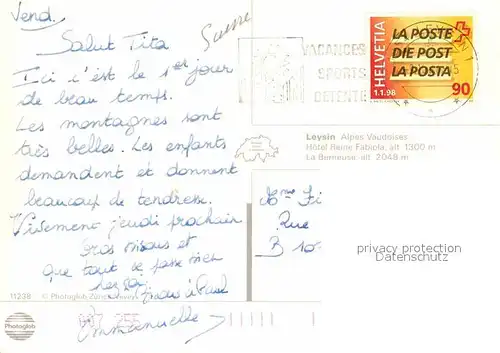 Vend.
Suisse
Salut Tita
Ici c'est le 1er jour
de beau temps.
Les montagnes sont
très belles. Les enfants
demandent et donnent
beaucoup de tendresse.
Vivement jeudi prochain
Gros bisous et
que tout se passe bien
Paul
Emmanuelle
VACANCES
SPORTS
DETENTE
HELVETIA
1.1.98
LA POSTE
DIE POST
LA POSTA
90
Leysin Alpes Vaudoises
Hôtel Reine Fabiola, alt 1300 m
La Berneuse, alt 2048 m
Rue
B
privacy protection
Datenschutz
11238 © Photoglob Zürich/Vevey
Photoglob